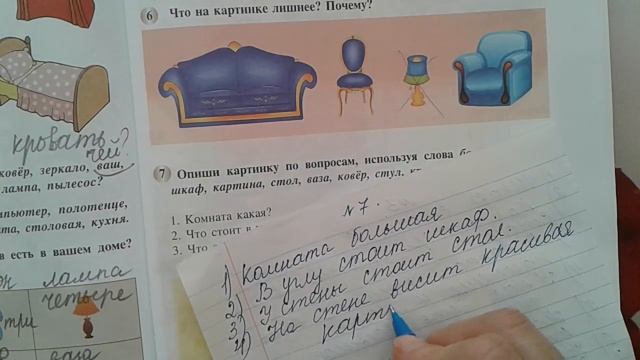 6 Что на картинке лишнее? Почему?
кровать
чей?
ковёр, зеркало, ваш,
лампа, пылесос?
7 Опиши картинку по вопросам, используя слова
шкаф, картина, стол, ваза, ковёр, стул,
1. Комната какая?
2. Что стоит в
3. Что
полотенце,
столовая, кухня.
есть в вашем доме?
лампа
три
четыре
ваза
№7.
1) Комната большая
2) В углу стоит шкаф.
3) У стены стоит стол.
4) На стене висит красивая
карт